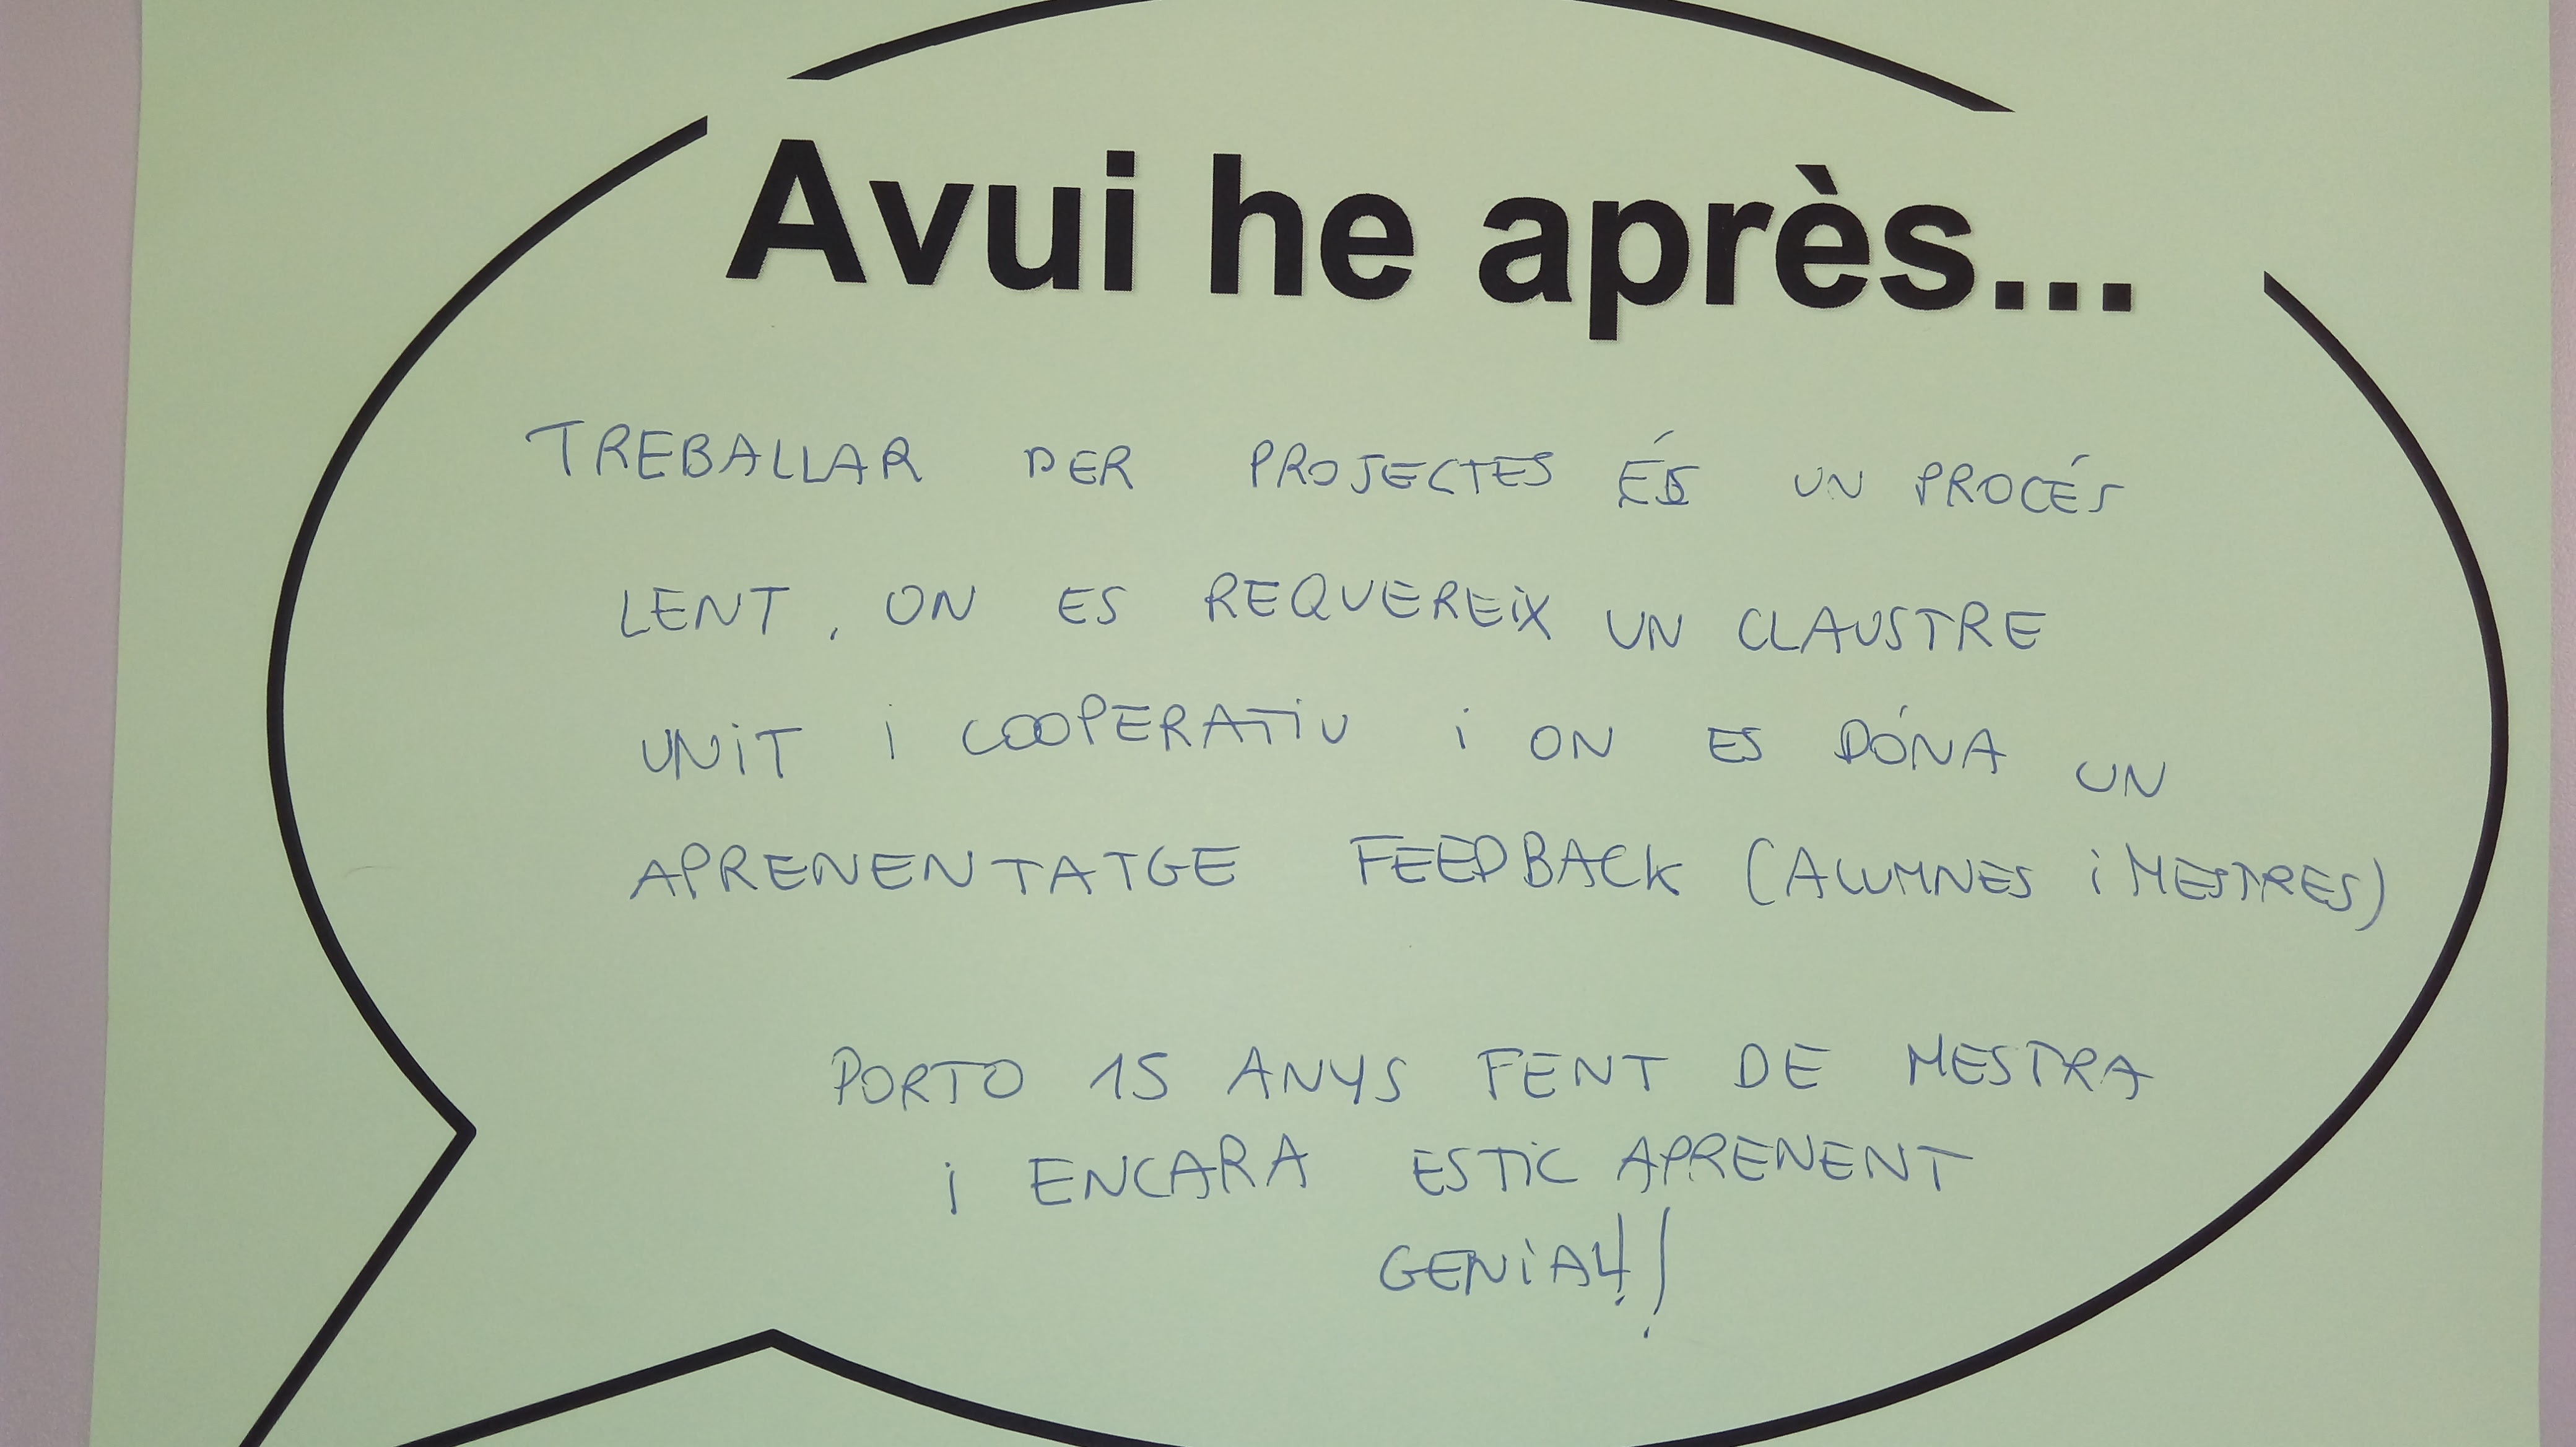 Avui he après...
TREBALLAR PER PROJECTES ÉS UN PROCÉS
LENT, ON ES REQUEREiX UN CLAUSTRE
UNiT i COOPERATiU i ON ES DÓNA UN
APRENENTATGE FEEDBACK (ALUMNES i MESTRES)
PORTO 15 ANYS FENT DE MESTRA
i ENCARA ESTiC APRENENT
GENiAL!!